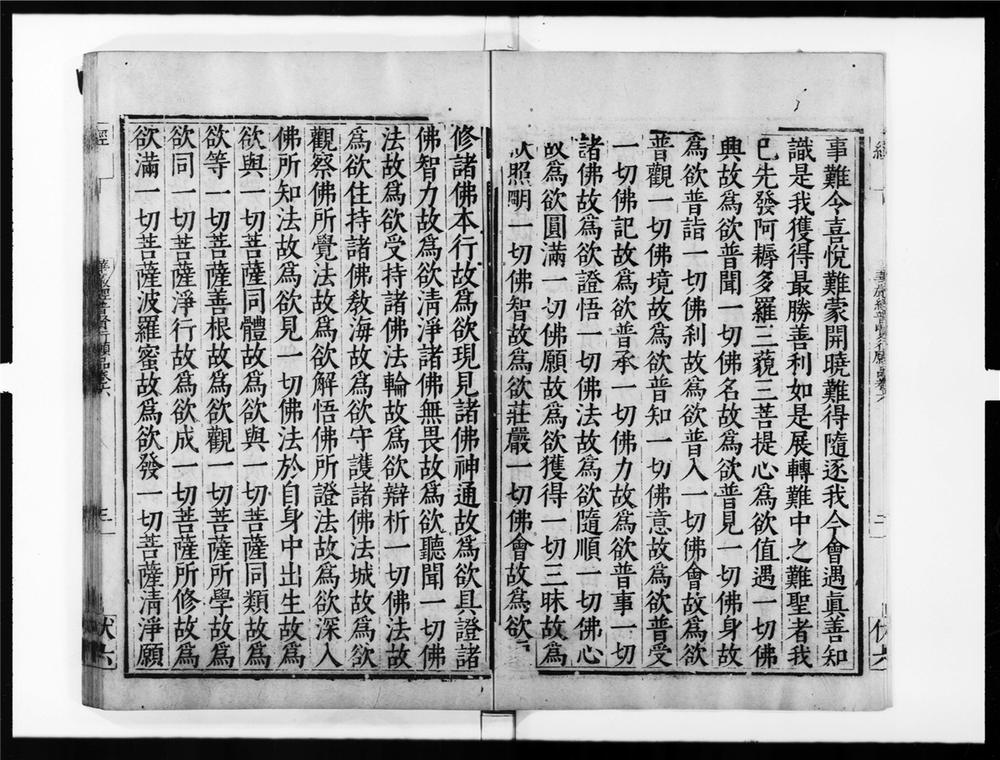 事難今喜悅難蒙開曉難得隨逐我今會遇眞善知
識是我獲得最勝善利如是展轉難中之難聖者我
已先發阿耨多羅三藐三菩提心爲欲值遇一切佛
興故爲欲普聞一切佛名故爲欲普見一切佛身故
爲欲普詣一切佛刹故爲欲普入一切佛會故爲欲
普觀一切佛境故爲欲普知一切佛意故爲欲普受
一切佛記故爲欲普承一切佛力故爲欲普事一切
諸佛故爲欲證悟一切佛法故爲欲隨順一切佛心
故爲欲圓滿一切佛願故爲欲獲得一切三昧故爲
欲照明一切佛智故爲欲莊嚴一切佛會故爲欲
修諸佛本行故爲欲現見諸佛神通故爲欲具證諸
佛智力故爲欲清淨諸佛無畏故爲欲聽聞一切佛
法故爲欲受持諸佛法輪故爲欲辯析一切佛法故
爲欲住持諸佛教海故爲欲守護諸佛法城故爲欲
觀察佛所覺法故爲欲解悟佛所證法故爲欲深入
佛所知法故爲欲見一切佛法於自身中出生故爲
欲與一切菩薩同體故爲欲與一切菩薩同類故爲
欲等一切菩薩善根故爲欲觀一切菩薩所學故爲
欲同一切菩薩淨行故爲欲成一切菩薩所修故爲
欲滿一切菩薩波羅蜜故爲欲發一切菩薩清淨願
經
華嚴經普賢行願品卷六
三
伏六